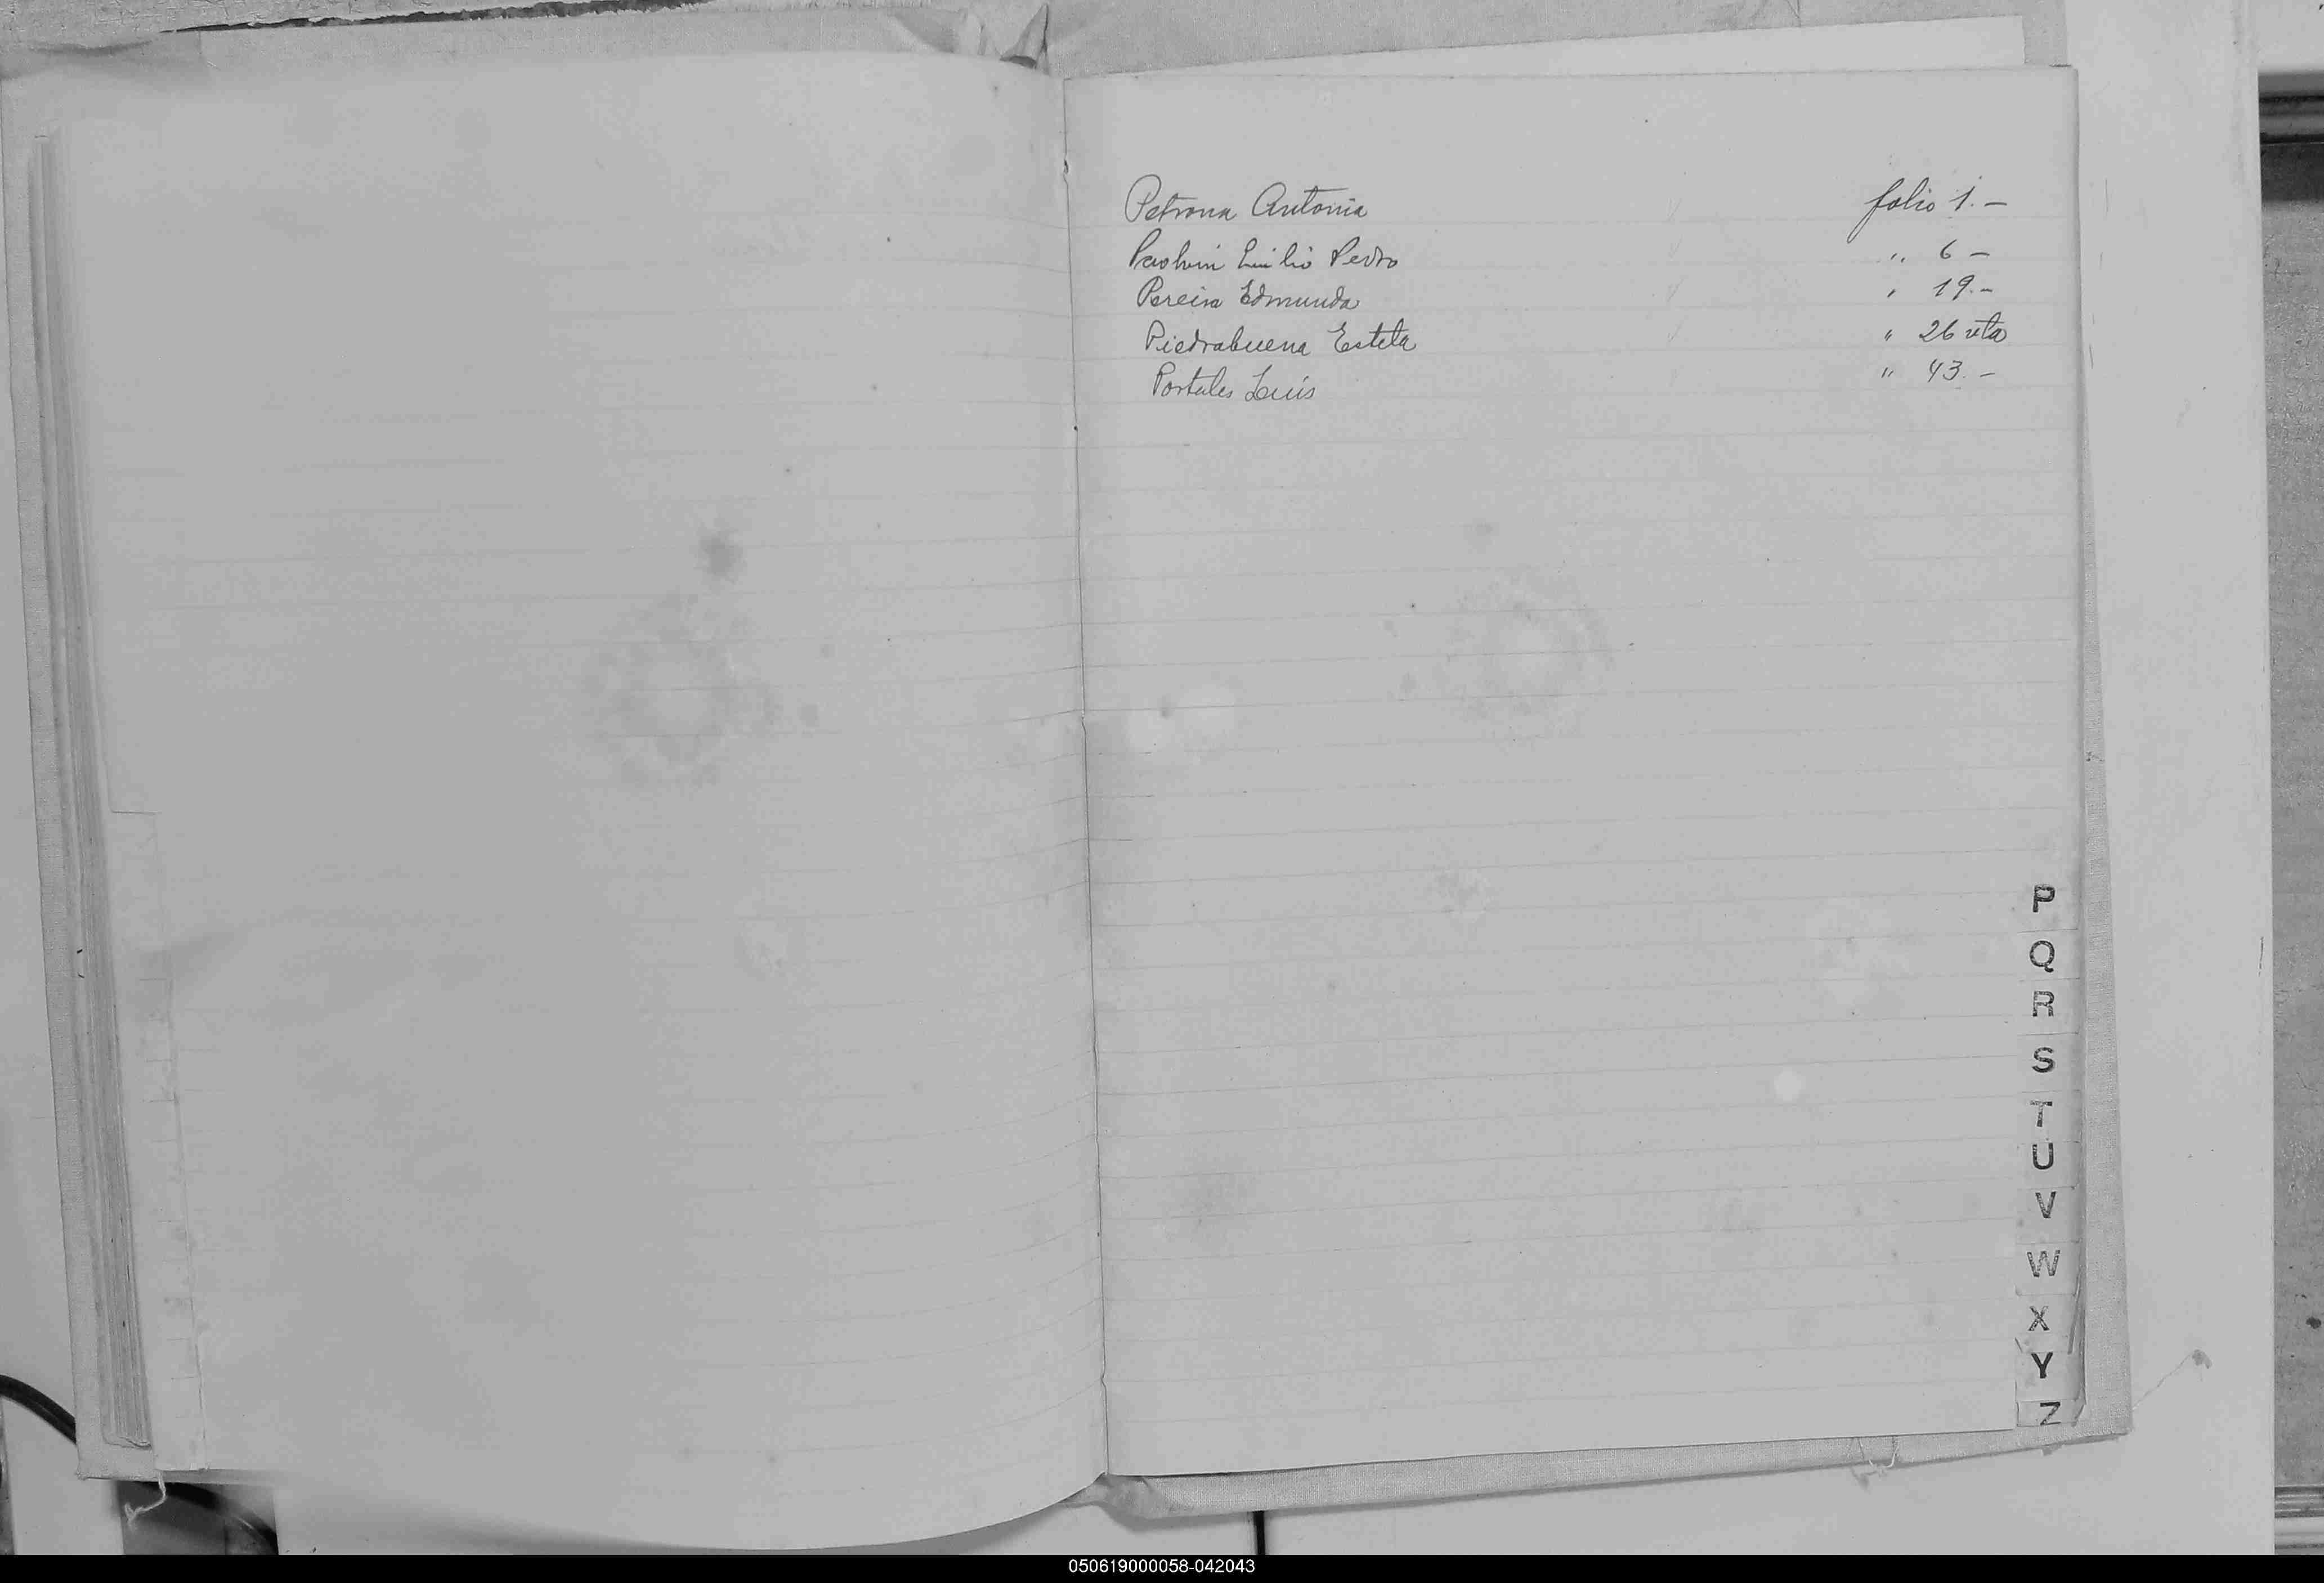 Petrona Antonia folio 1.-
Paolini Emilio Pedro " 6 -
Pereira Edmunda " 19.-
Piedrabuena Estela " 26 vta
Portales Luis " 43.-
P
Q
R
S
T
U
V
W
X
Y
Z
050619000058-042043